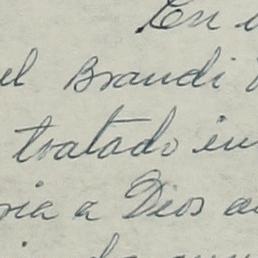 En
el Brandi
tratado in
ria a Dios